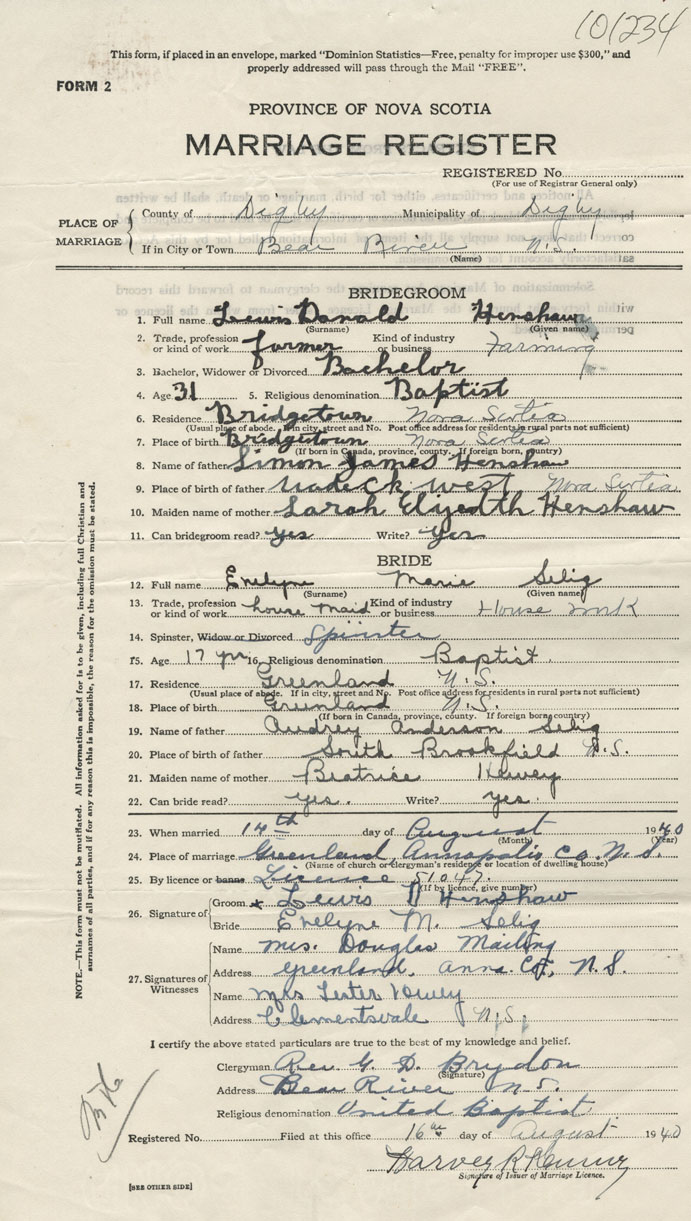 101234
This form, if placed in an envelope, marked "Dominion Statistics—Free, penalty for improper use $300," and
properly addressed will pass through the Mail "FREE".
FORM 2
PROVINCE OF NOVA SCOTIA
MARRIAGE REGISTER
REGISTERED No.
(For use of Registrar General only)
PLACE OF MARRIAGE
County of Digby Municipality of Digby
If in City or Town Bear River N.S.
(Name)
BRIDEGROOM
1. Full name Lewis Donald Henshaw
(Surname) (Given name)
2. Trade, profession or kind of work farmer Kind of industry or business Farming
3. Bachelor, Widower or Divorced Bachelor
4. Age 31 5. Religious denomination Baptist
6. Residence Bridgetown Nova Scotia
(Usual place of abode. If in city, street and No. Post office address for residents in rural parts not sufficient)
7. Place of birth Bridgetown Nova Scotia
(If born in Canada, province, county. If foreign born, country)
8. Name of father Simon James Henshaw
9. Place of birth of father West Nova Scotia
10. Maiden name of mother Sarah Henshaw
11. Can bridegroom read? yes Write? yes
BRIDE
12. Full name Evelyne Marie Selig
(Surname) (Given name)
13. Trade, profession or kind of work house maid Kind of industry or business House work
14. Spinster, Widow or Divorced Spinster
15. Age 17 yrs 16. Religious denomination Baptist.
17. Residence Greenland N.S.
(Usual place of abode. If in city, street and No. Post office address for residents in rural parts not sufficient)
18. Place of birth Greenland N.S.
(If born in Canada, province, county. If foreign born, country)
19. Name of father Audrey Anderson Selig
20. Place of birth of father South Brookfield N.S.
21. Maiden name of mother Beatrice
22. Can bride read? yes. Write? yes.
23. When married 14th day of August 1940
(Month) (Year)
24. Place of marriage Greenland, Annapolis Co. N.S.
(Name of church or clergyman's residence or location of dwelling house)
25. By licence or banns Licence 51047.
(If by licence, give number)
26. Signature of
Groom x Lewis D Henshaw
Bride Evelyne M. Selig
27. Signatures of Witnesses
Name Mrs. Douglas Mailing
Address Greenland, Anna. Co., N.S.
Name Mrs Lester
Address Clementsvale N.S.
I certify the above stated particulars are true to the best of my knowledge and belief.
Clergyman Rev. G. D. Brydon
(Signature)
Address Bear River N.S.
Religious denomination United Baptist
Registered No. Filed at this office 16th day of August 1940
Harvey R
Signature of Issuer of Marriage Licence.
[SEE OTHER SIDE]
NOTE.—This form must not be mutilated. All information asked for is to be given, including full Christian and
surnames of all parties, and if for any reason this is impossible, the reason for the omission must be stated.